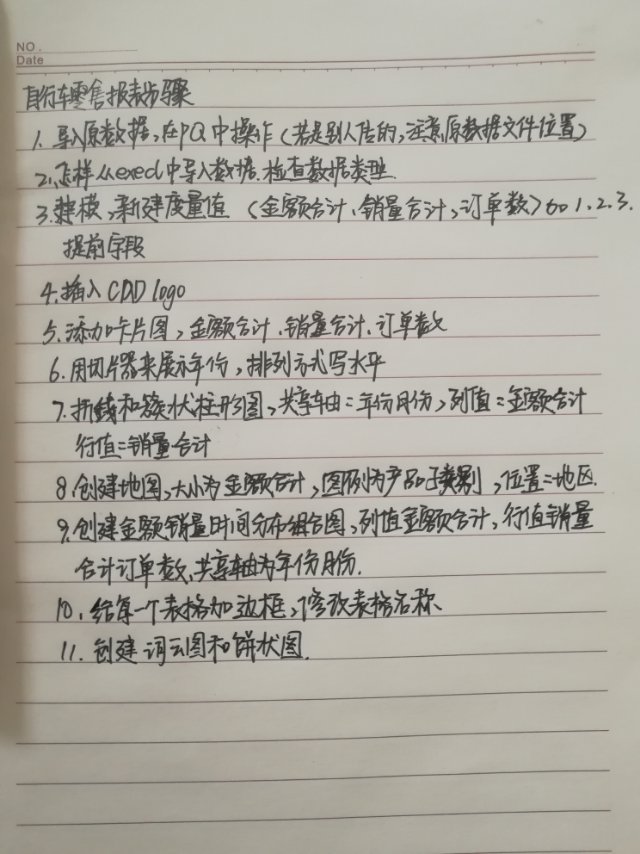 NO.
Date
自行车零售报表步骤
1. 导入原数据,在PQ中操作(若是别人给的,注意原数据文件位置)
2. 怎样从excel中导入数据.检查数据类型
3. 建模,新建度量值(金额合计、销量合计,订单数)
提前字段
4. 插入CDD logo
5. 添加卡片图,金额合计.销量合计.订单数
6. 用切片器来展示年份,排列方式写水平
7. 折线和簇状柱形图,共享轴=年份月份,列值=金额合计
行值=销量合计
8. 创建地图,大小为金额合计,图例为产品子类别,位置=地区.
9. 创建金额销量时间分布组合图,列值金额合计,行值销量
合计订单数,共享轴为年份月份.
10. 给每一个表格加边框,修改表格名称
11. 创建词云图和饼状图.